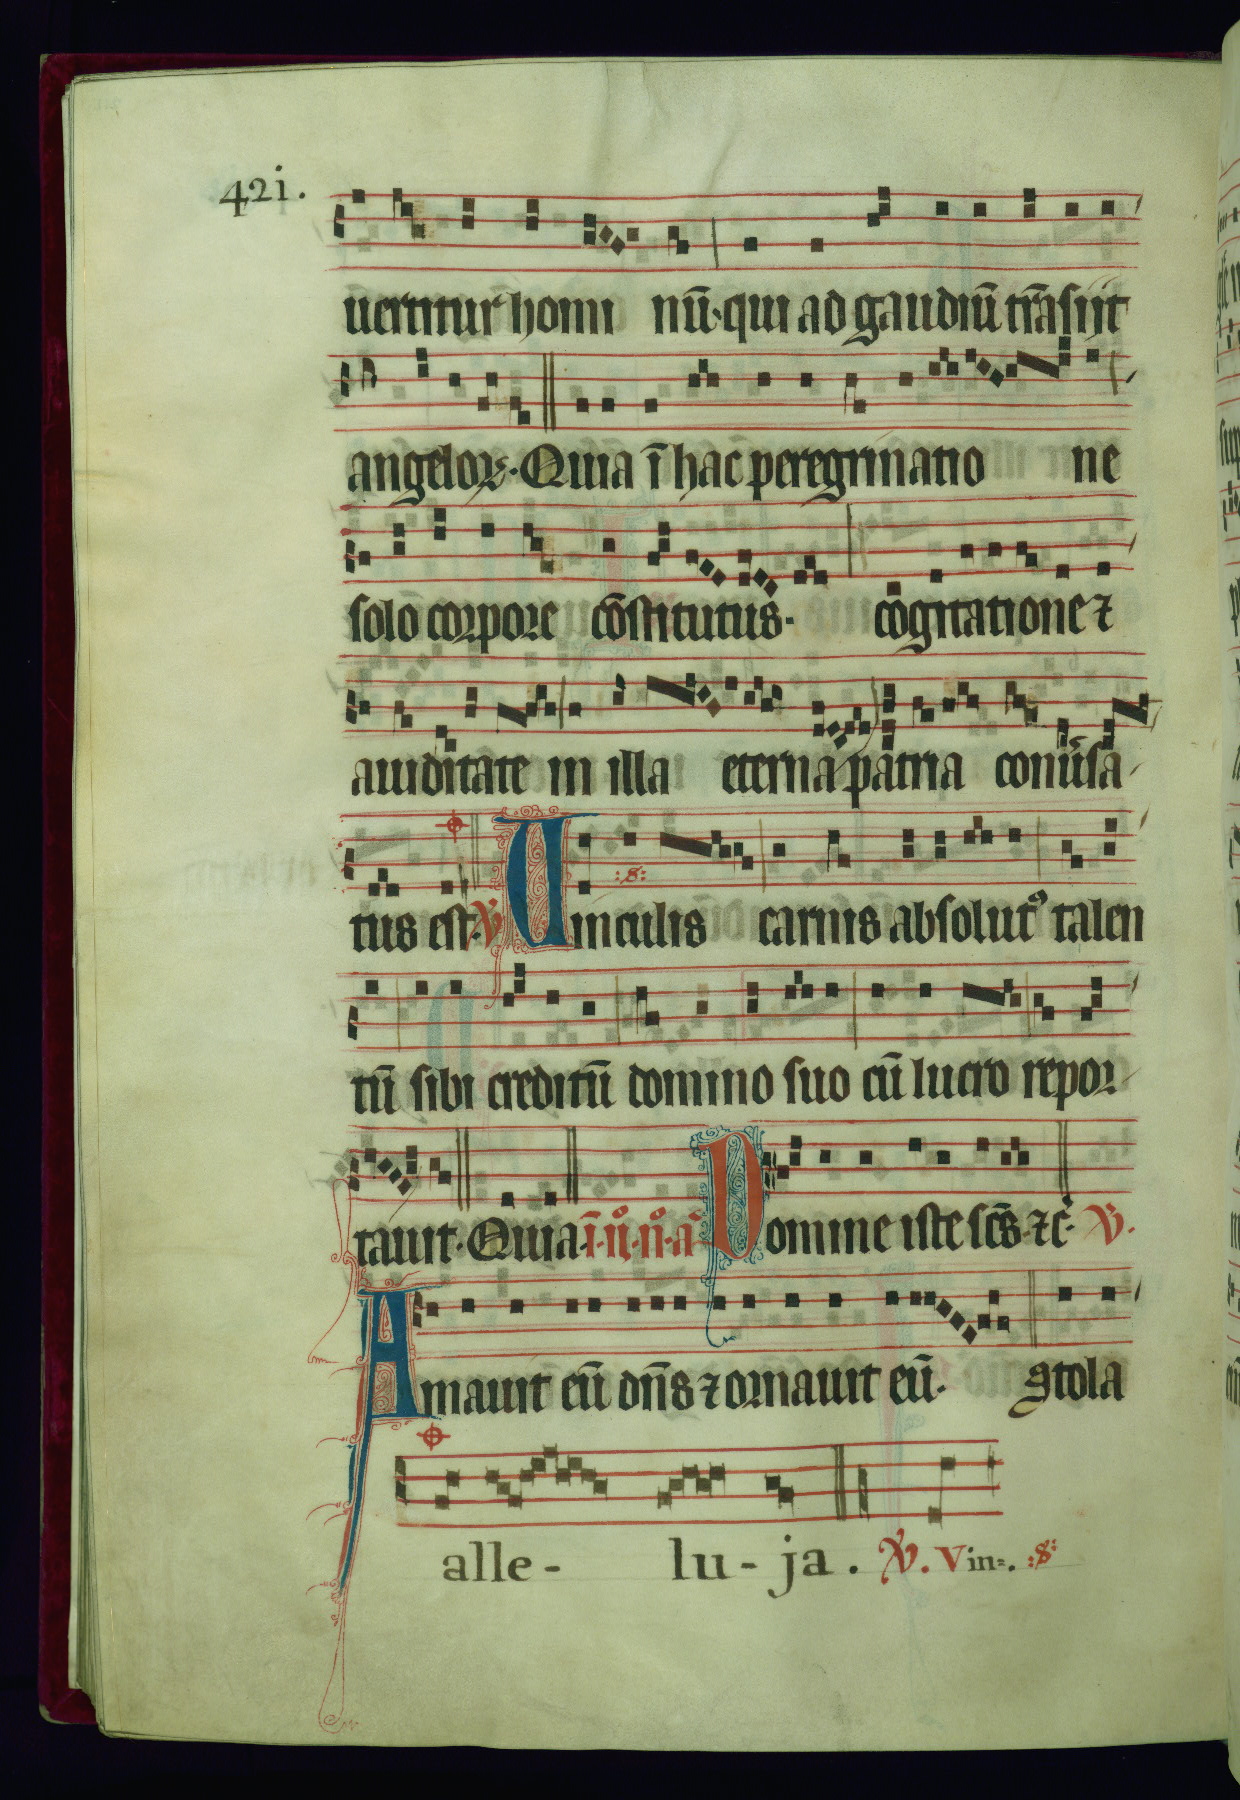 421.
uertitur homi nū·qui ad gaudiū trāsijt
angeloꝝ·Quia ī hac peregrinatio ne
solo corpore cōstitutus· cogitatione ⁊
auiditate in illa eterna patria conūsa
tus est·℣ Uinculis carnis absolutꝰ talen
:s:
tū sibi creditū domino suo cū lucro repor
tauit·Quia· Domine iste sc̄s·⁊c̄· ℣.
Amauit eū dn̄s ⁊ ornauit eū· Stola
alle - lu - ja . ℣. Vin=. :s: